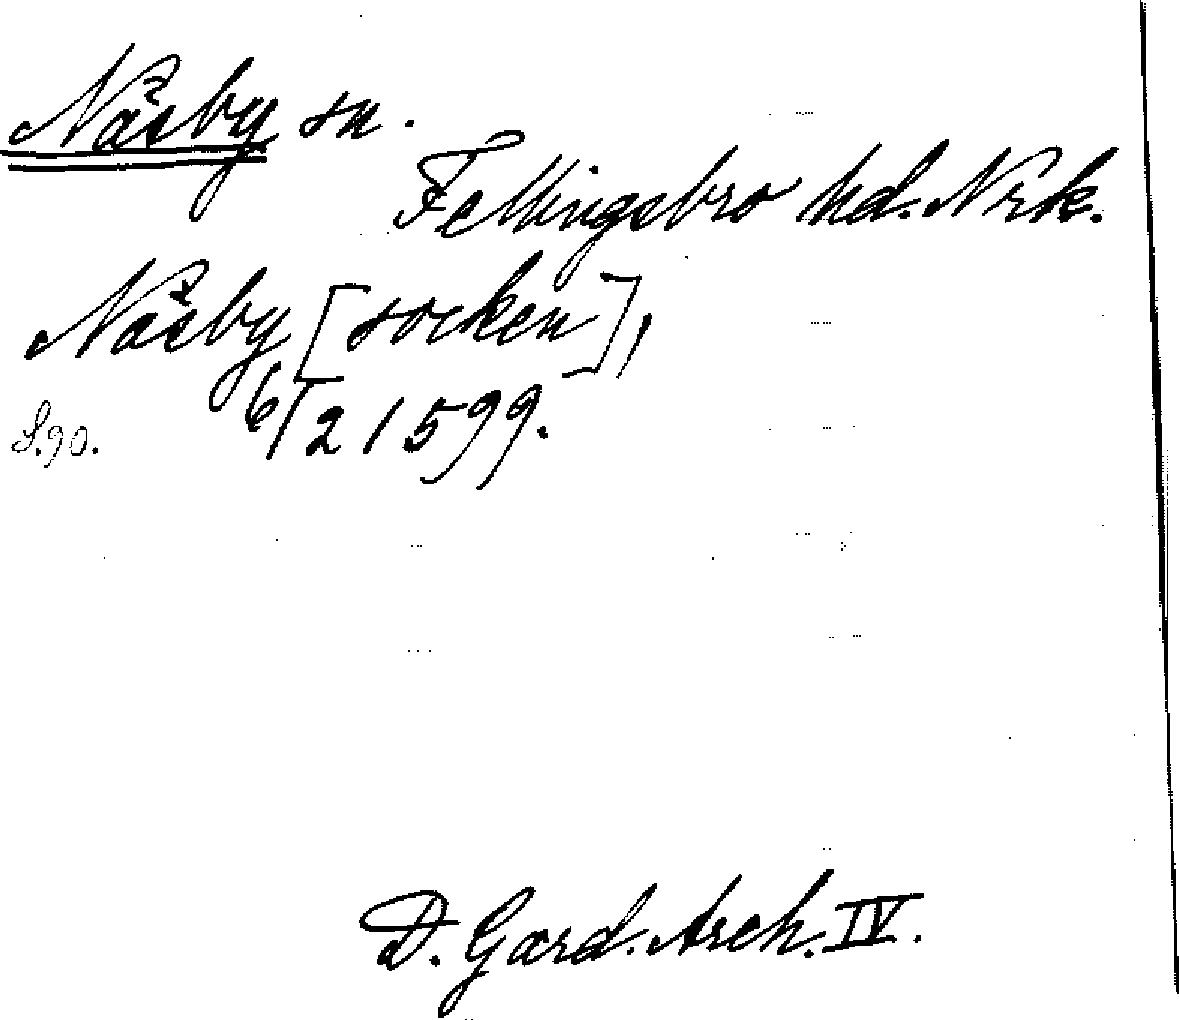 Näsby sn.
Fellingsbro hd. Nrk.
Näsby [socken],
S. 90. 6/2 1599.
D. Gard. Arch. IV.